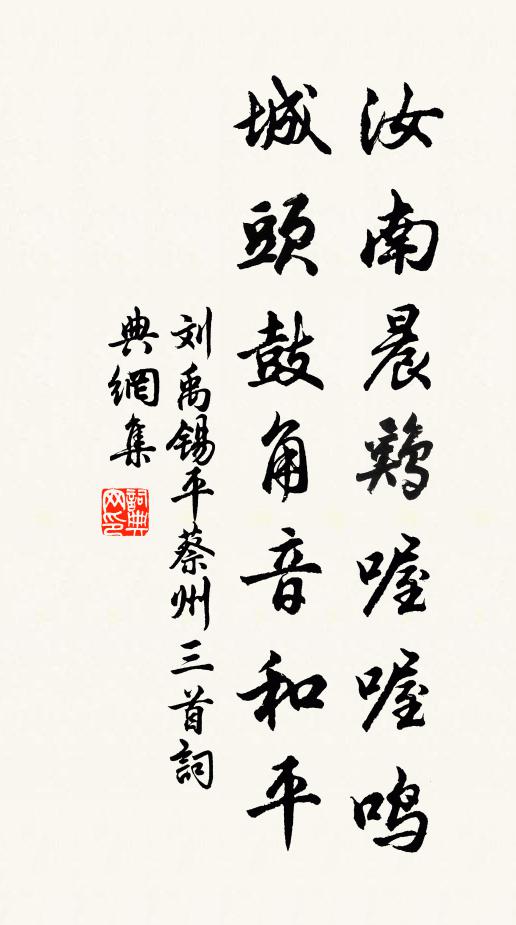 汝南晨鷄喔喔鸣
城頭鼓角音和平
刘禹錫平蔡州三首詞
典網集
詞典网印